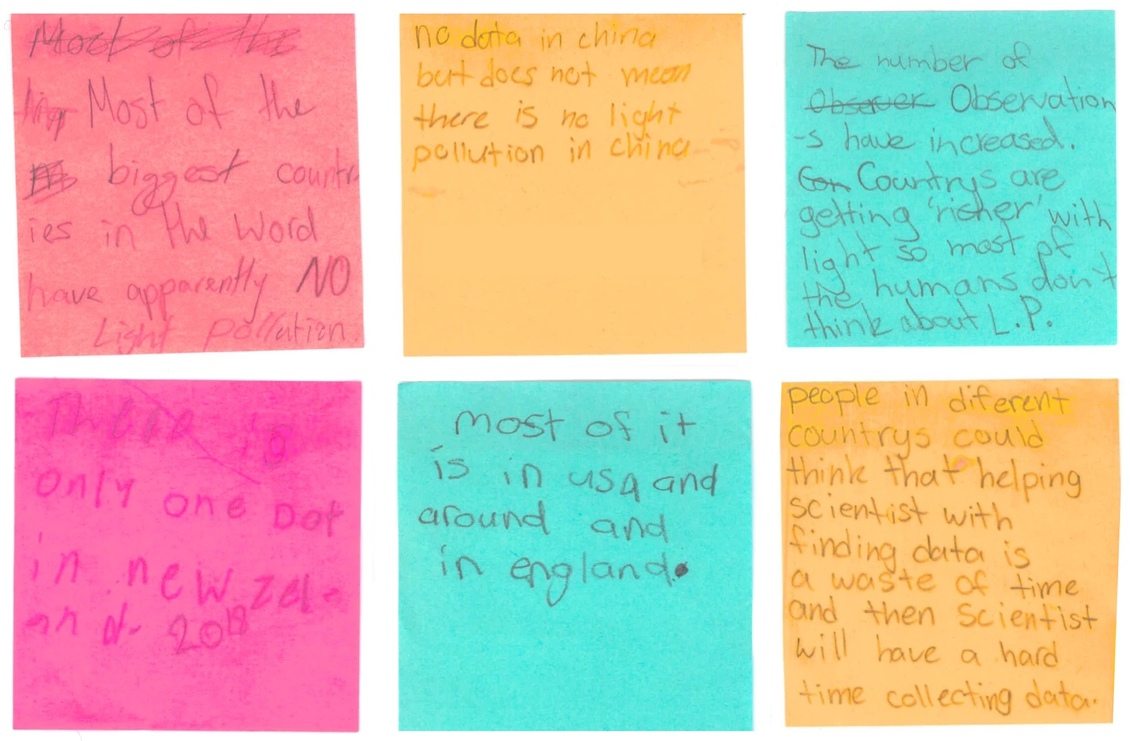 Most of the
Most of the
biggest countr
ies in the Word
have apparently NO
Light pollution.
no data in china
but does not mean
there is no light
pollution in china
The number of
Obserer Observation
-s have increased.
Con Countrys are
getting 'richer' with
light so most of
the humans don't
think about L.P.
is
only one Dot
in new zela
an d- 2018
most of it
is in usa and
around and
in england.
people in diferent
countrys could
think that helping
scientist with
finding data is
a waste of time
and then scientist
will have a hard
time collecting data.